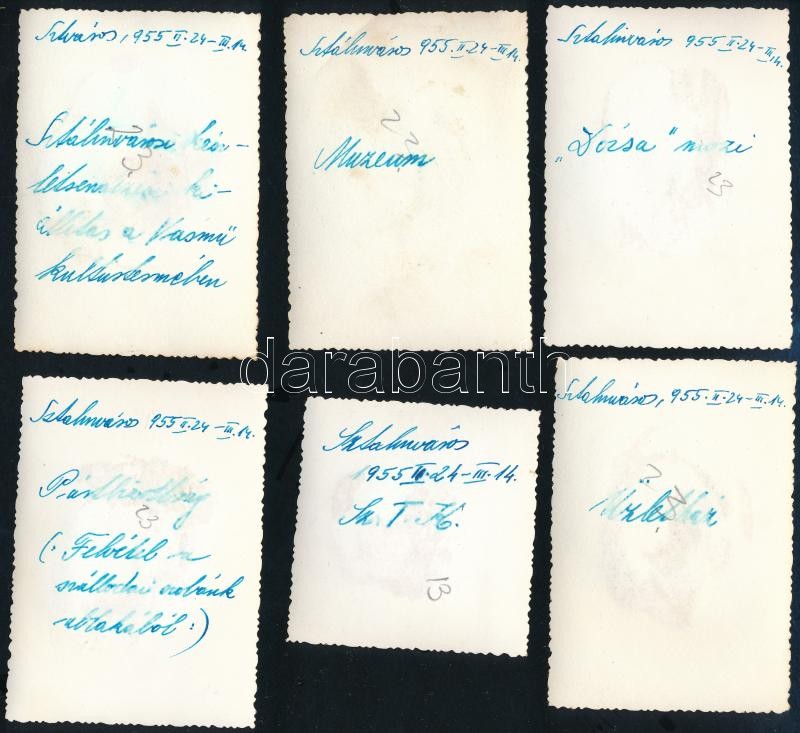 Sztváros, 955 II. 24 – III. 14.
Sztálinvárosi
állítás a Vasmű
kultúrtermében
23
Sztálinváros 955. II. 24 – III. 14.
Muzeum
23
Sztalinváros 955 II. 24 – III. 14.
„Dózsa” mozi
23
darabanth
Sztalinváros 955 II. 24 – III. 14.
Pártbizottság
(: Felvétel a
szállodai szobánk
ablakából :)
23
Sztalinváros
1955 II. 24 – III. 14.
Sz. T. K.
13
Sztalinváros, 955. II. 24 – III. 14.
Üzletház